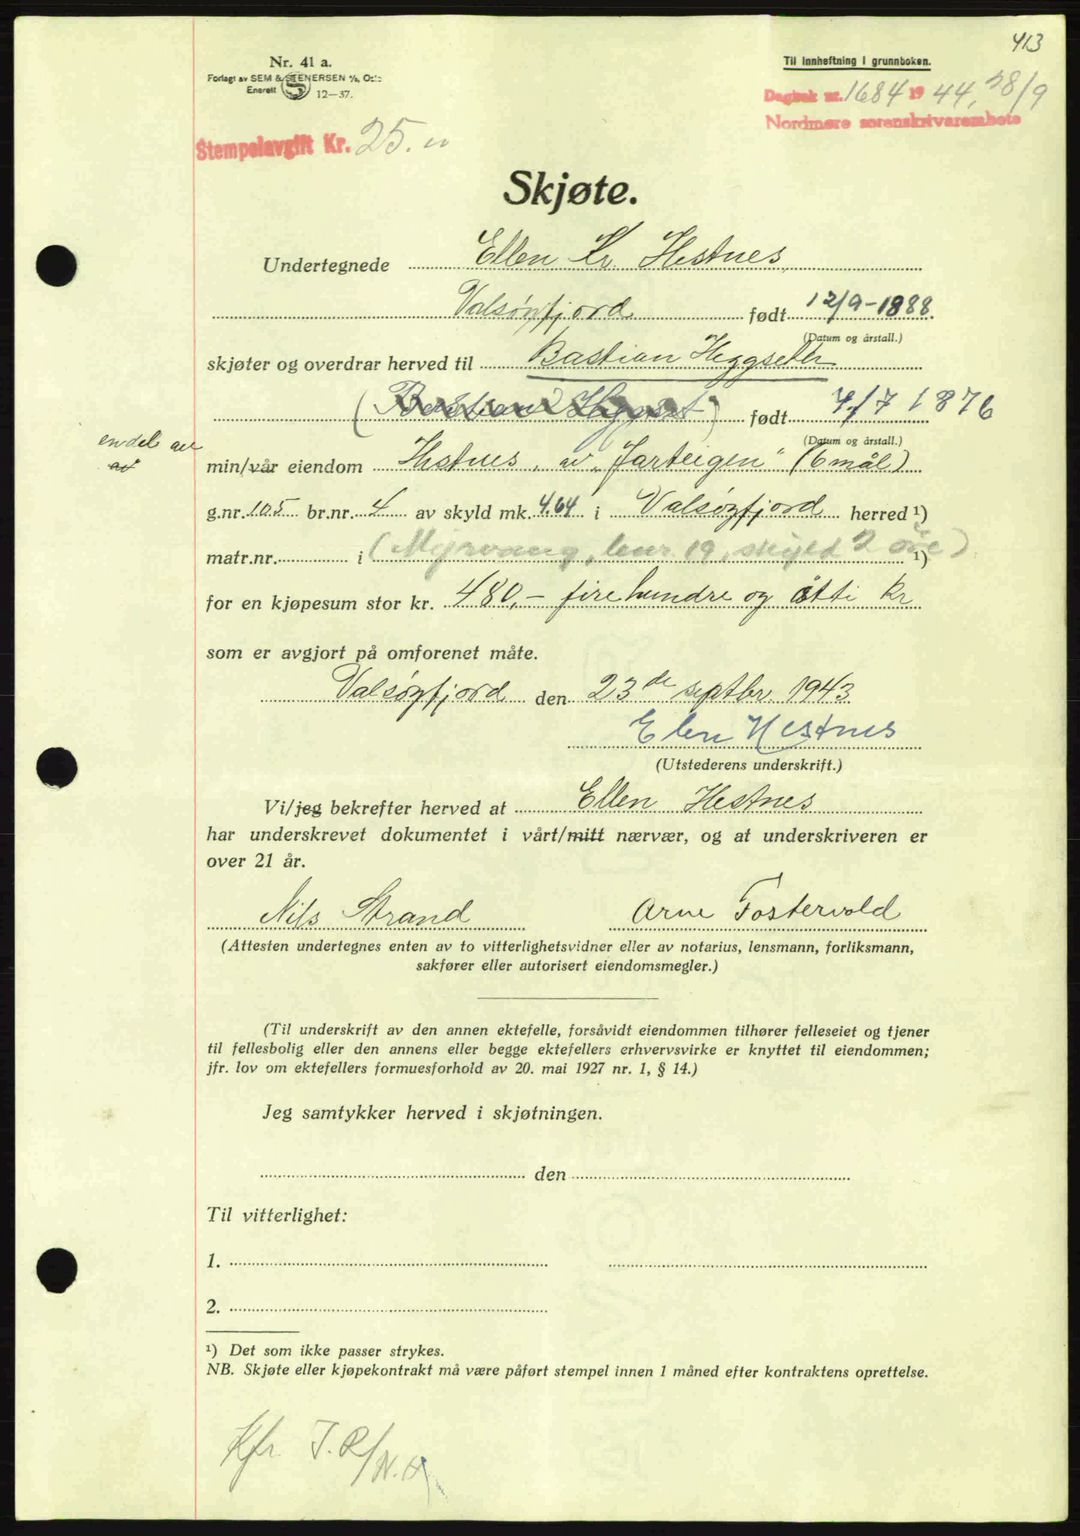 413
Nr. 41 a.
Forlagt av SEM & STENERSEN A/S, Oslo
Enerett S 12-37.
Til innheftning i grunnboken.
Dagbok nr. 1684 1944, 28/9
Nordmøre sorenskrivarembete
Stempelavgift Kr. 25.
Skjøte.
Undertegnede Ellen Kr. Hestnes,
Valsøyfjord født 12/9-1888.
(Datum og årstall.)
skjøter og overdrar herved til Bastian Heggseth
(Bastian Heggset) født 4/7 1876
(Datum og årstall.)
en del av
av
min/vår eiendom Hestnes, av „Jarteigen" (6 mål)
g.nr. 105 br.nr. 4 av skyld mk. 4.64 i Valsøyfjord herred ¹)
matr.nr. i (Myrvang, bnr. 19, skyld 2 øre) ¹)
for en kjøpesum stor kr. 480,- fire hundre og åtti kr
som er avgjort på omforenet måte.
Valsøyfjord den 23de septbr. 1943
Elen Hestnes
(Utstederens underskrift.)
Vi/jeg bekrefter herved at Ellen Hestnes
har underskrevet dokumentet i vårt/mitt nærvær, og at underskriveren er
over 21 år.
Nils Strand Arne Fostervold
(Attesten undertegnes enten av to vitterlighetsvidner eller av notarius, lensmann, forliksmann,
sakfører eller autorisert eiendomsmegler.)
(Til underskrift av den annen ektefelle, forsåvidt eiendommen tilhører felleseiet og tjener
til fellesbolig eller den annens eller begge ektefellers erhvervsvirke er knyttet til eiendommen;
jfr. lov om ektefellers formuesforhold av 20. mai 1927 nr. 1, § 14.)
Jeg samtykker herved i skjøtningen.
den
Til vitterlighet:
1.
2.
¹) Det som ikke passer strykes.
NB. Skjøte eller kjøpekontrakt må være påført stempel innen 1 måned efter kontraktens oprettelse.
Kfr.